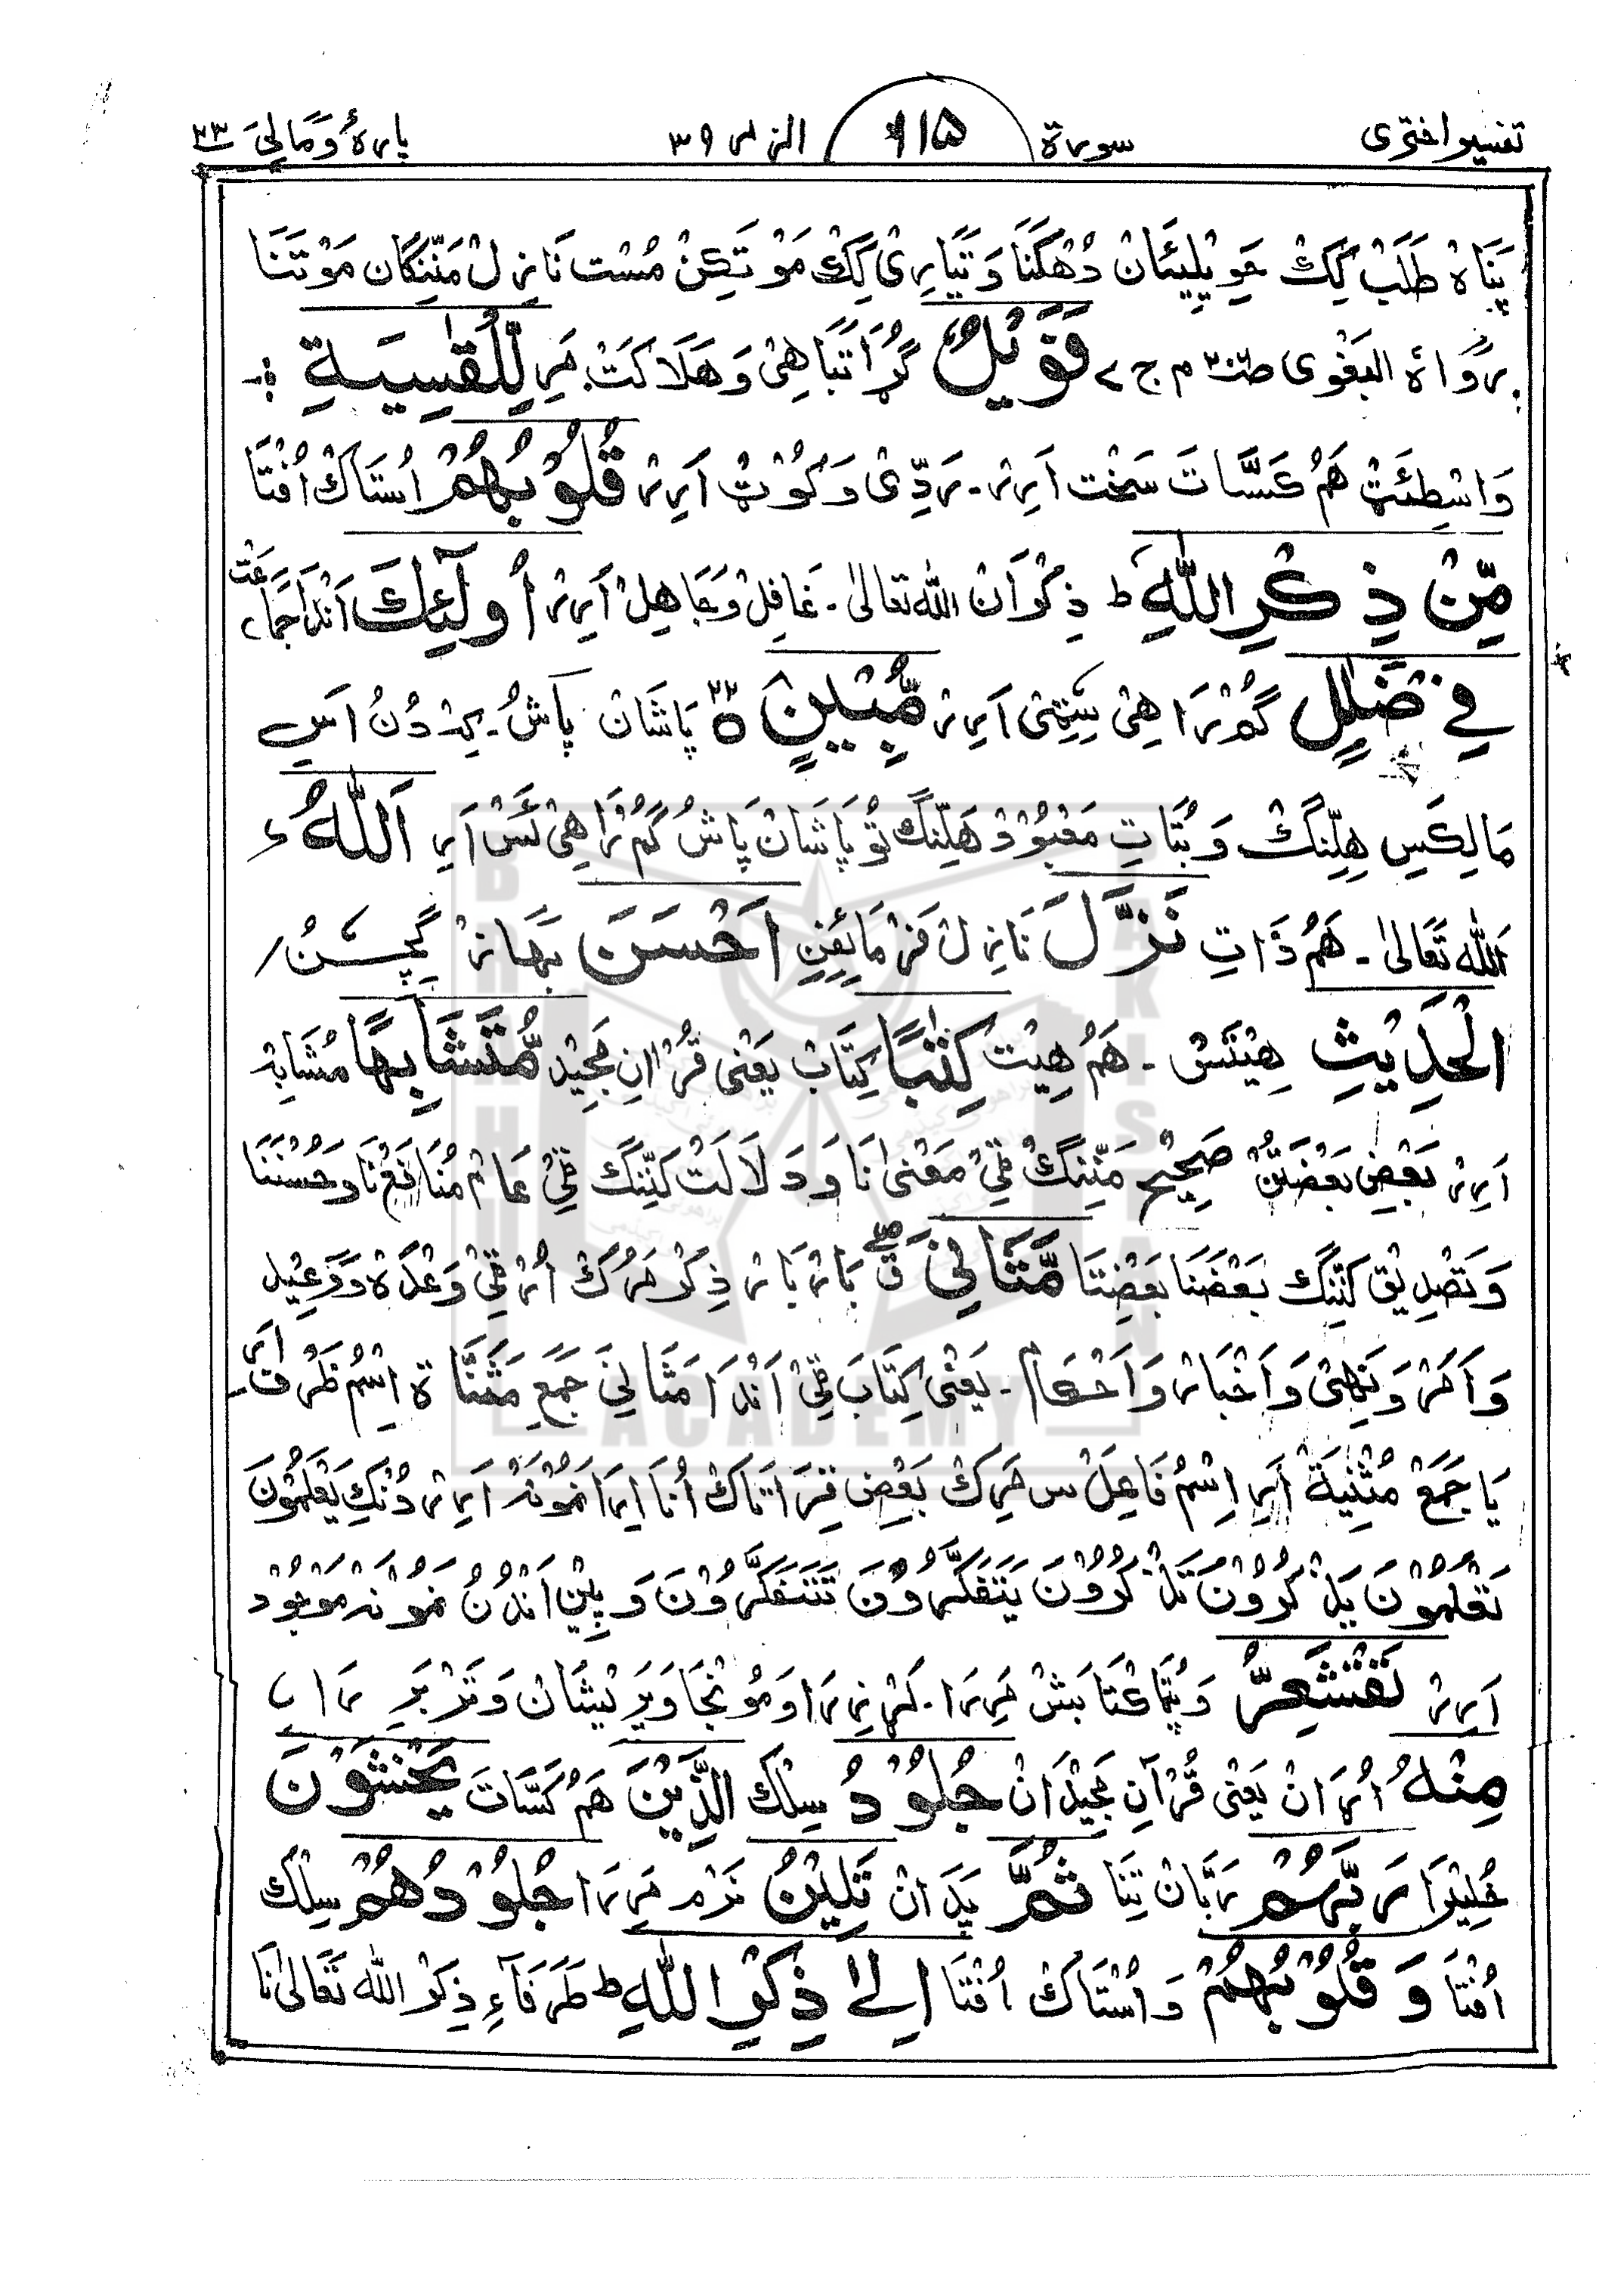 تفسیر اختری سورة ۱۱۵ الزمر ۳۹ پارهٔ وَمَالِیَ ۲۳
پَنَاہ طَلَبْ کِکْ دُھکَنَا وَ تَیَّارِیْ کِکْ مَوْتَکِنْ مُسْت نَازِلْ مَنِّنگان مَوْتَنَا
رَوَاهُ البَغْوِی م ج ۷ فَوَیْلٌ گُڑَا تَبَاهِیْ وَ هَلَاکَتْ مَرِ لِّلْقٰسِیَةِ
وَاسْطِئَتْ هَمُ کَسَّاتَ سَخْت اَرِیر۔ رَدِّیْ وَ کُوْتْ اَرِیر قُلُوْبُهُمْ اُسْتَاکْ اُفْتَا
مِّنْ ذِکْرِ اللّٰهِ ط ذِکْرَانْ اللہ تعالیٰ۔ غَافِلْ وَ جَاهِلْ اَرِیر اُولٰٓئِكَ اَنْدَا جَمَاعَتْ
فِیْ ضَلٰلٍ گُمْرَاهِیْ سِیْتِیْ اَرِیر مُّبِیْنٍ ۲۲ پَاشَانْ پَاشُ۔ دُنُ اَسِ
مَالِکَسِ هِلِّنگْ وَ بُتَاتِ مَعْبُوْدْ هَلِّنگْ تُو پَاشَانْ پَاشُ گُمْرَاهِیْ ئَسْ اَرِ اَللّٰهُ
اَللہ تَعَالیٰ۔ هَمُ ذَاتِ نَزَّلَ نَازِلْ فَرْمَائِفِنِ اَحْسَنَ بَهَازْ
الْحَدِیْثِ هِیْتَسْ۔ هَمُ هِیْت کِتٰبًا کِتَابْ یَعْنِی قُرْاٰنِ مَجِیْد مُّتَشَابِهًا مُشَابِہ
اَرِیر بَعْضِ بَعْضَتَنْ صَحِیْح مَنِّنگْ ٹِیْ مَعْنیٰ نَا وَ دَلَالَتْ کَنِّنگ ٹِیْ عَامْ مُنَافَعْ نَا وَ حُسْنَنَا
وَ تَصْدِیْق کَنِّنگ بَعْضَنَا بَعْضِتَا مَّثَانِیَ بَارْ بَارْ ذِکْر مَرُکْ اُرْ ٹِیْ وَعْدَہ وَ وَعِیْد
وَ اَمْرْ وَ نَهِیْ وَ اَخْبَارْ وَ اَحْکَام۔ یَعْنِی کِتَابَ ٹِیْ اَنْدَا مَثَانِیَ جَمَعِ مَثْنَاة اِسْمُ ظَرْف اَرِ
یَا جَمَعْ مُثْنِیَةْ اَرِ اِسْمُ فَاعِلْ س مَرِکْ بَعْضِ قِرَاتَاکْ اُنَا اِرَا نَمُوْنَہ اَرِیر دُنْکِ یَعْلَمُوْنَ
تَعْلَمُوْنَ یَذْکُرُوْنَ تَذْکُرُوْنَ یَتَفَکَّرُوْنَ تَتَفَکَّرُوْنَ وَ پِیْن اَنْدُنُ نَمُوْنَہ مَوْجُوْد
اَرِیر تَقْشَعِرُّ وَ پُتَّاکْتَا بَشْ مَرِرَا۔ لَرْزِرَا وَ مُوْنْجَا وَ پَرِیْشَانْ وَ
مِنْهُ اُرَانْ یَعْنِی قُرْاٰنِ مَجِیْدَانْ جُلُوْدُ سِلْک الَّذِیْنَ هَمُ کَسَّاتَ یَخْشَوْنَ
خُلِیْرَا رَبَّهُمْ رَبَّانْ تِنَا ثُمَّ پَدَانْ تَلِیْنُ نَرْم مَرِرَا جُلُوْدُهُمْ سِلْک
اُفْتَا وَ قُلُوْبُهُمْ وَ اُسْتَاکْ اُفْتَا اِلٰی ذِکْرِ اللّٰهِ ط طَرَفَآءِ ذِکْرِ اللہ تَعَالیٰ نَا
BRAHUI
BAKHSHAN
ACADEMY